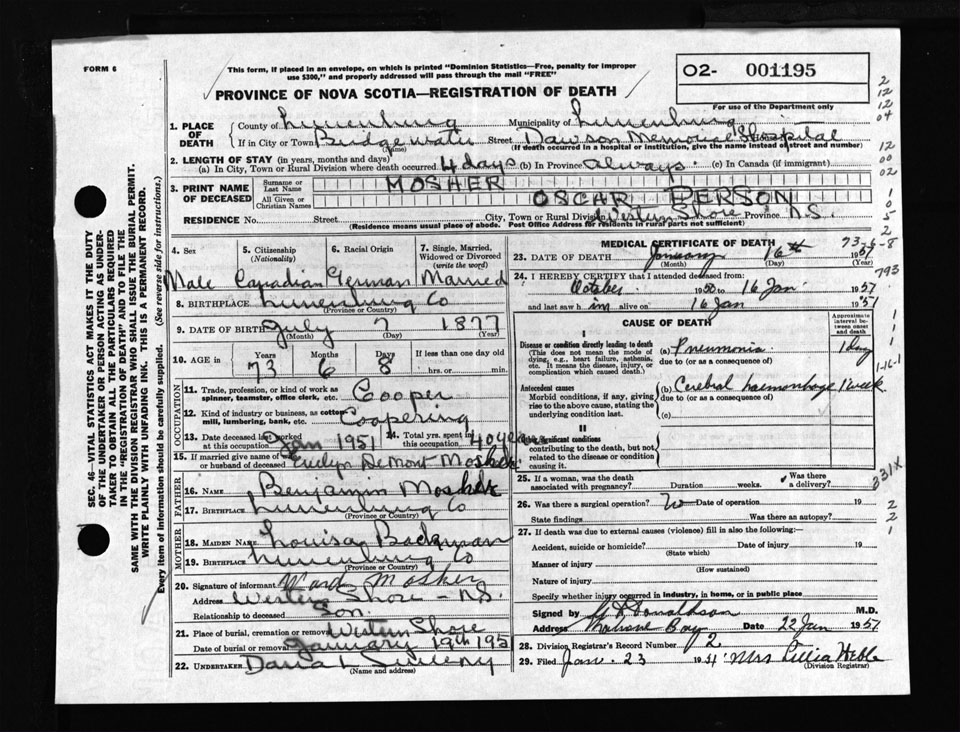 FORM 6
This form, if placed in an envelope, on which is printed "Dominion Statistics—Free, penalty for improper
use $300," and properly addressed will pass through the mail "FREE"
PROVINCE OF NOVA SCOTIA—REGISTRATION OF DEATH
O2- 001195
For use of the Department only
1. PLACE OF DEATH
County of Lunenburg Municipality of Lunenburg
If in City or Town Bridgewater (Name) Street Dawson Memorial Hospital
(If death occurred in a hospital or institution, give the name instead of street and number)
2. LENGTH OF STAY (in years, months and days)
(a) In City, Town or Rural Division where death occurred 4 days (b) In Province always. (c) In Canada (if immigrant)
3. PRINT NAME OF DECEASED
Surname or Last Name MOSHER
All Given or Christian Names OSCAR BERSON
RESIDENCE No. Street City, Town or Rural Division Western Shore Province N.S.
(Residence means usual place of abode. Post Office Address for residents in rural parts not sufficient)
4. Sex 5. Citizenship (Nationality) 6. Racial Origin 7. Single, Married, Widowed or Divorced (write the word)
Male Canadian German Married
8. BIRTHPLACE Lunenburg Co
(Province or Country)
9. DATE OF BIRTH July 7 1877
(Month) (Day) (Year)
10. AGE in Years Months Days If less than one day old
73 6 8 hrs. or min.
OCCUPATION
11. Trade, profession, or kind of work as spinner, teamster, office clerk, etc. Cooper
12. Kind of industry or business, as cotton-mill, lumbering, bank, etc. Coopering
13. Date deceased last worked at this occupation Jan 1951 14. Total yrs. spent in this occupation 40 years
15. If married give name of wife or husband of deceased Evelyn DeMont Mosher
FATHER
16. NAME Benjamin Mosher
17. BIRTHPLACE Lunenburg Co
(Province or Country)
MOTHER
18. MAIDEN NAME Louisa Backman
19. BIRTHPLACE Lunenburg Co
(Province or Country)
20. Signature of informant Ward Mosher
Address Western Shore - N.S.
Relationship to deceased Son.
21. Place of burial, cremation or removal Western Shore
January 19th 195
22. UNDERTAKER Sweeny
(Name and address)
MEDICAL CERTIFICATE OF DEATH
23. DATE OF DEATH January 16th 1951
(Month) (Day)
24. I HEREBY CERTIFY that I attended deceased from:
October 1950 to 16 Jan 1951
and last saw him alive on 16 Jan 1951
CAUSE OF DEATH
Approximate interval between onset and death
I
Disease or condition directly leading to death
(This does not mean the mode of dying, e.g., heart failure, asthenia, etc. It means the disease, injury, or complication which caused death.)
(a) Pneumonia. 1 Day
Antecedent causes
Morbid conditions, if any, giving rise to the above cause, stating the underlying condition last.
(b) Cerebral haemorrhage 1 week
(c)
II
Other Significant conditions
contributing to the death, but not related to the disease or condition causing it.
25. If a woman, was the death associated with pregnancy? Duration weeks. Was there a delivery?
26. Was there a surgical operation? No Date of operation 19
State findings Was there an autopsy?
27. If death was due to external causes (violence) fill in also the following:
Accident, suicide or homicide? Date of injury 19
(State which)
Manner of injury
(How sustained)
Nature of injury
Specify whether injury occurred in industry, in home, or in public place
Signed by M.D.
Address Mahone Bay Date 22 Jan 1951
28. Division Registrar's Record Number 2
29. Filed Jan. 23 1951 Mrs
(Division Registrar)
SEC. 46—VITAL STATISTICS ACT MAKES IT THE DUTY
OF THE UNDERTAKER OR PERSON ACTING AS UNDER-
TAKER TO OBTAIN ALL THE PARTICULARS REQUIRED
IN THE "REGISTRATION OF DEATH" AND TO FILE THE
SAME WITH THE DIVISION REGISTRAR WHO SHALL ISSUE THE BURIAL PERMIT.
WRITE PLAINLY WITH UNFADING INK. THIS IS A PERMANENT RECORD.
Every item of information should be carefully supplied. (See reverse side for instructions.)
2
12
12
04
12
00
02
1
0
5
2
73-6-8
793
1
1
1
1-16-1
331X
2
2
1